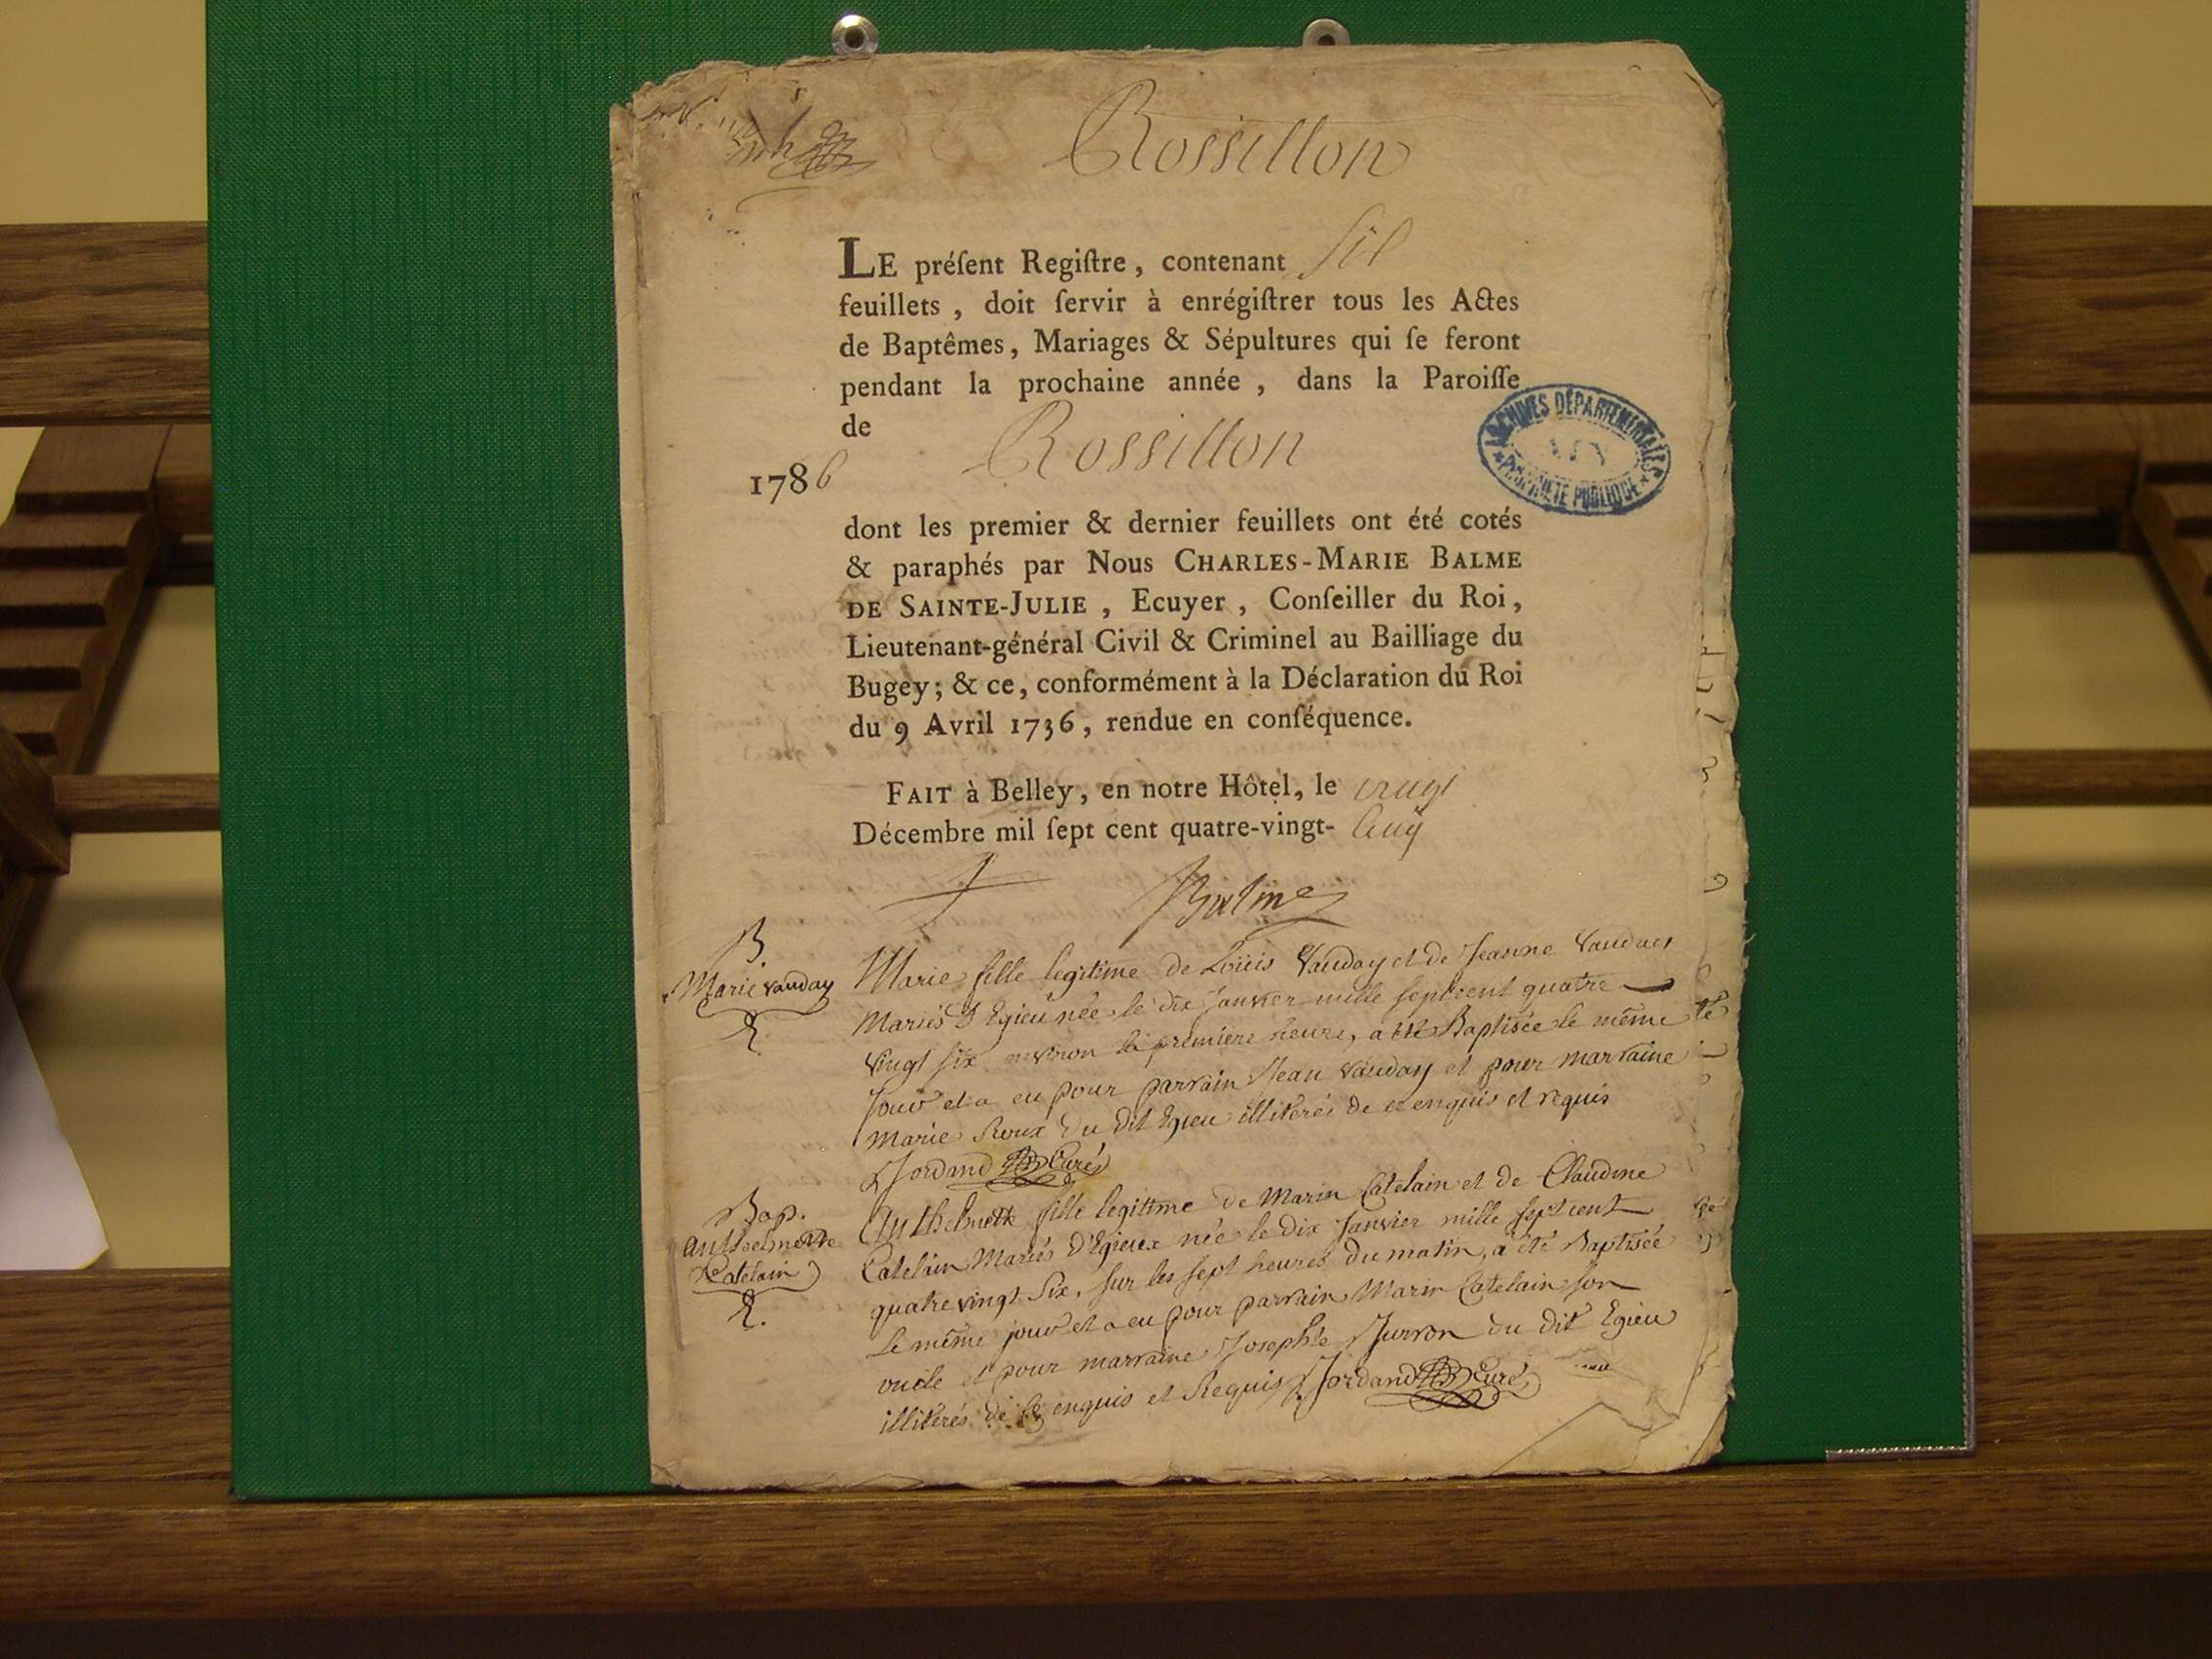 Rossillon
LE préſent Regiſtre, contenant six
feuillets, doit ſervir à enrégiſtrer tous les Actes
de Baptêmes, Mariages & Sépultures qui ſe feront
pendant la prochaine année, dans la Paroiſſe
de Rossillon
1786
ARCHIVES DÉPARTEMENTALES
AIN
PROPRIÉTÉ PUBLIQUE
dont les premier & dernier feuillets ont été cotés
& paraphés par Nous CHARLES-MARIE BALME
DE SAINTE-JULIE, Ecuyer, Conſeiller du Roi,
Lieutenant-général Civil & Criminel au Bailliage du
Bugey; & ce, conformément à la Déclaration du Roi
du 9 Avril 1736, rendue en conſéquence.
FAIT à Belley, en notre Hôtel, le vingt
Décembre mil ſept cent quatre-vingt- cinq
Balme
B.
Marie Vauday
Marie fille legitime de Loüis Vauday et de Jeanne Vauday
Mariés d'Egieu née le dix Janvier mille septcent quatre
vingt six environ la première heure, a été Baptisée le même
jour et a eu pour parrain Jean Vauday et pour marraine
marie Roux du dit Egieu illiterés de ce enquis et requis
Jordand Curé
Bap.
anthelmette
Catelain
Anthelmette fille legitime de Marin Catelain et de Claudine
Catelain Mariés D'Egieux née le dix Janvier mille septcent
quatre vingt Six, sur les sept heures du matin, a été Baptisée
le même jour et a eu pour parrain Marin Catelain son
oncle et pour marraine Josephte Jurron du dit Egieu
illiterés de ce enquis et Requis Jordand Curé